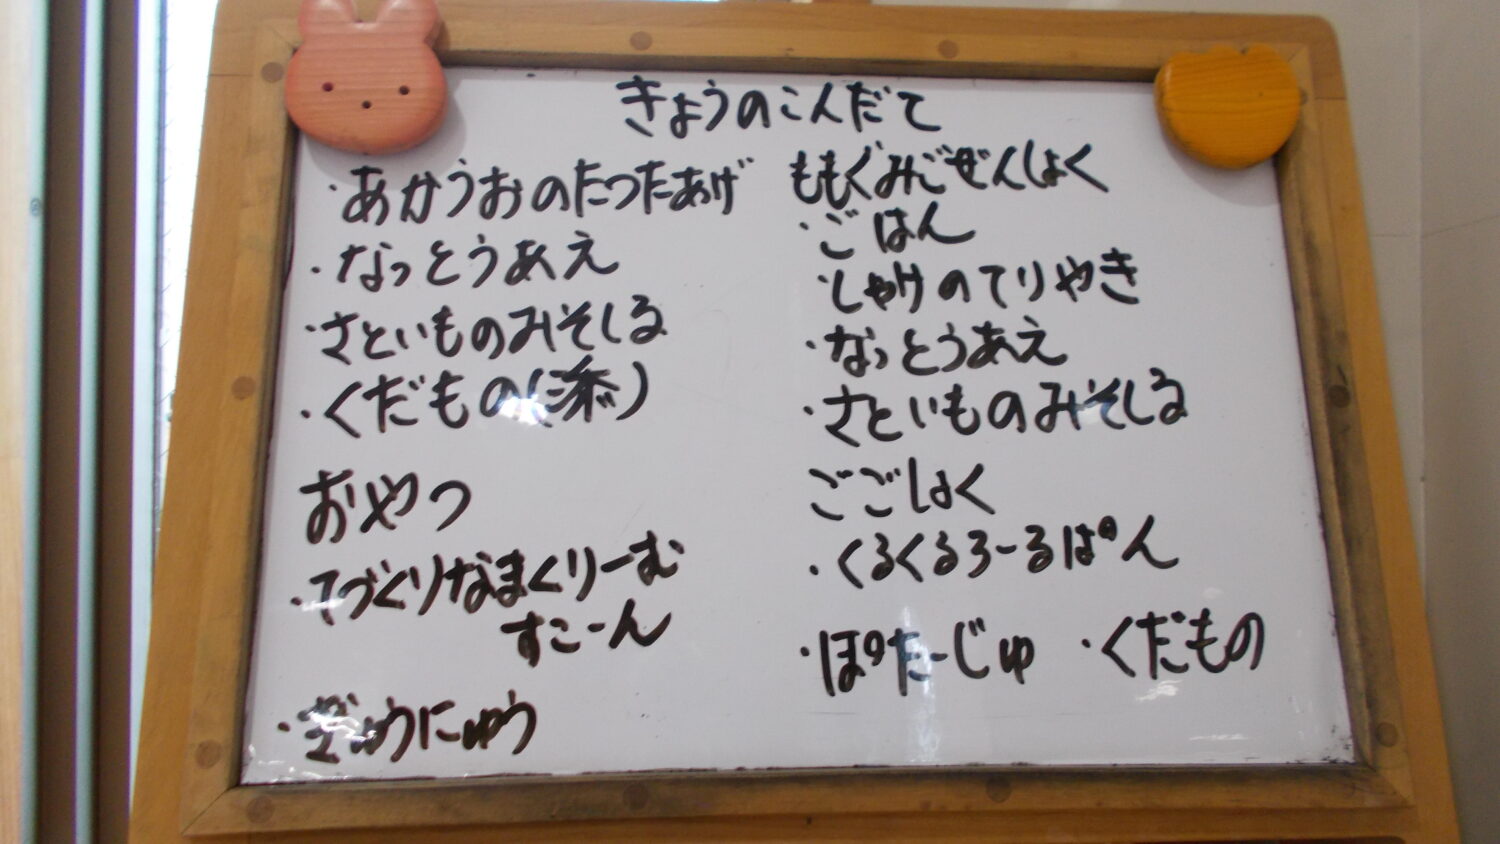 きょうのこんだて
・あかうおのたつたあげ
・なっとうあえ
・さといものみそしる
・くだもの(添)
おやつ
・てづくりなまくりーむ
すこーん
・ぎゅうにゅう
ももぐみごぜんしょく
・ごはん
・しゃけのてりやき
・なっとうあえ
・さといものみそしる
ごごしょく
・くるくるろーるぱん
・ぽたーじゅ ・くだもの